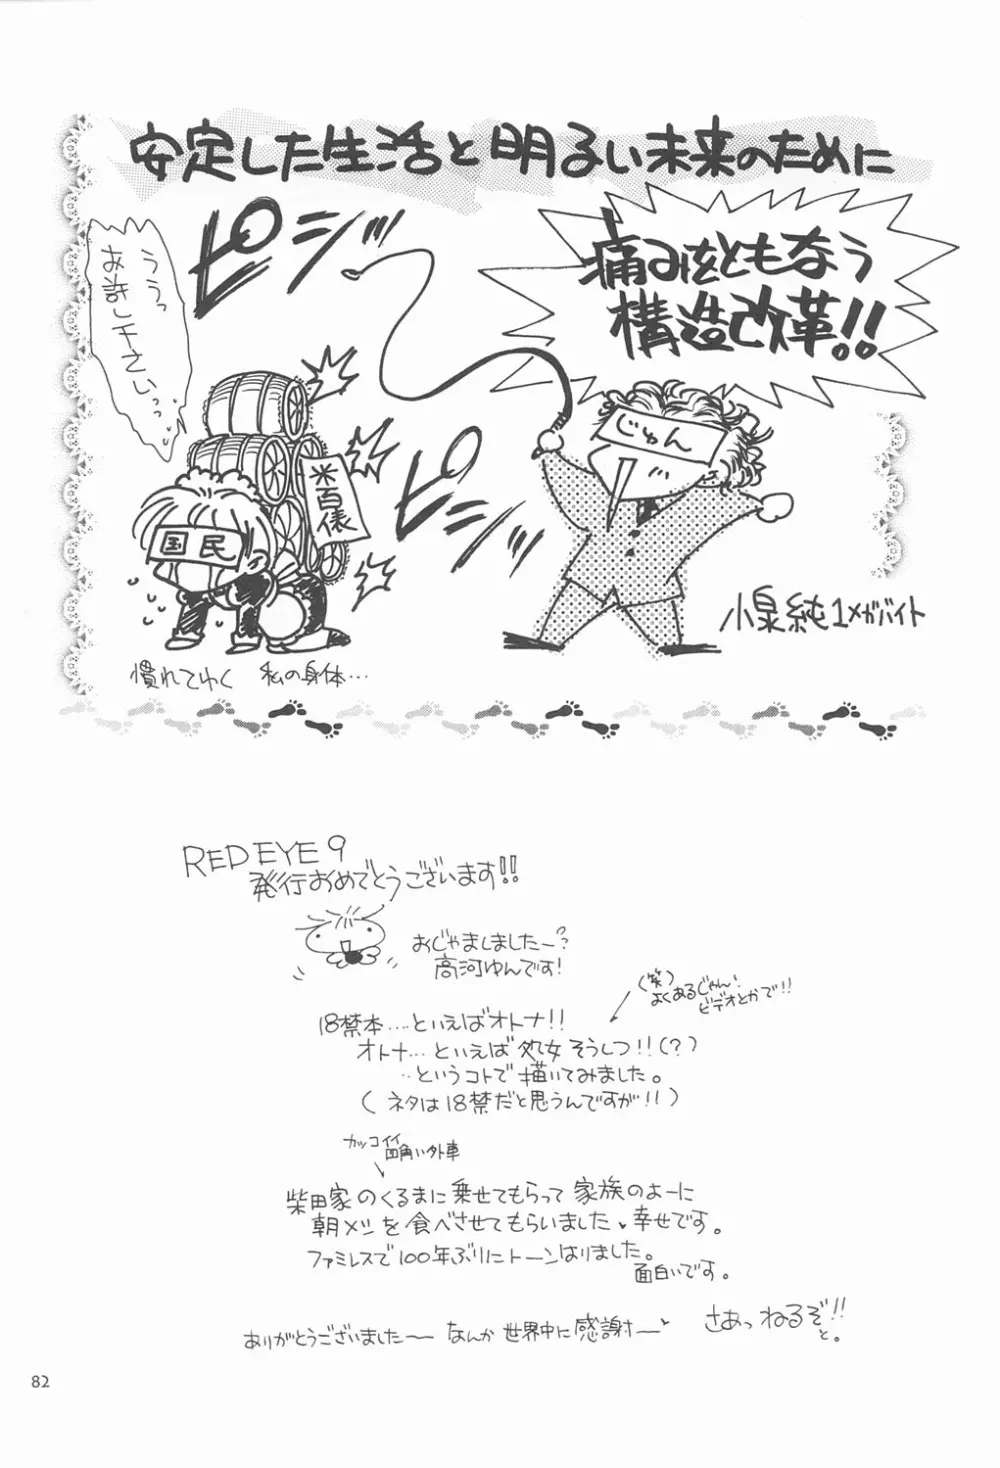 安定した生活と明るい未来のために
痛みをともなう
構造改革!!
ピシッ
ううっ
お許し下さいっっ
じゅん
米百俵
国民
ピシッ
小泉純1メガバイト
慣れてゆく 私の身体…
RED EYE 9
発行おめでとうございます!!
おじゃましましたー?
高河ゆんです!
(笑)
よくあるじゃん!
ビデオとかで!!
18禁本…といえばオトナ!!
オトナ…といえば処女そうしつ!!(?)
‥というコトで描いてみました。
(ネタは18禁だと思うんですが!!)
カッコイイ
四角い外車
柴田家のくるまに乗せてもらって家族のよーに
朝メシを食べさせてもらいました、幸せです。
ファミレスで100年ぶりにトーンはりました。
面白いです。
ありがとうございました〜〜 なんか世界中に感謝ー
さあっねるぞ!!
と。
82